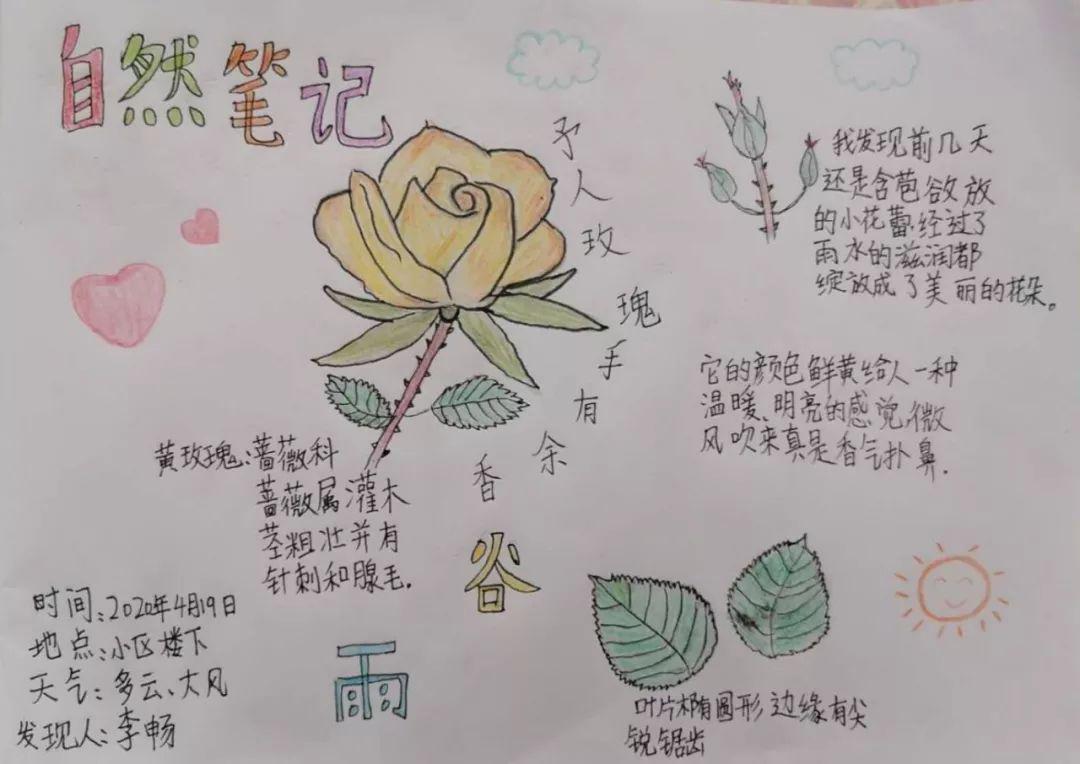 自然笔记
予人玫瑰手有余香
我发现前几天
还是含苞欲放
的小花蕾,经过了
雨水的滋润都
绽放成了美丽的花朵。
它的颜色鲜黄给人一种
温暖、明亮的感觉,微
风吹来真是香气扑鼻.
黄玫瑰:蔷薇科
蔷薇属灌木
茎粗壮并有
针刺和腺毛.
谷
雨
时间:2020年4月19日
地点:小区楼下
天气:多云、大风
发现人:李畅
叶片椭圆形边缘有尖
锐锯齿